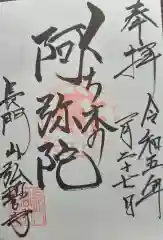 奉拝
令和 年 月二十七日
くち木の
阿弥陀
長門山弘誓寺